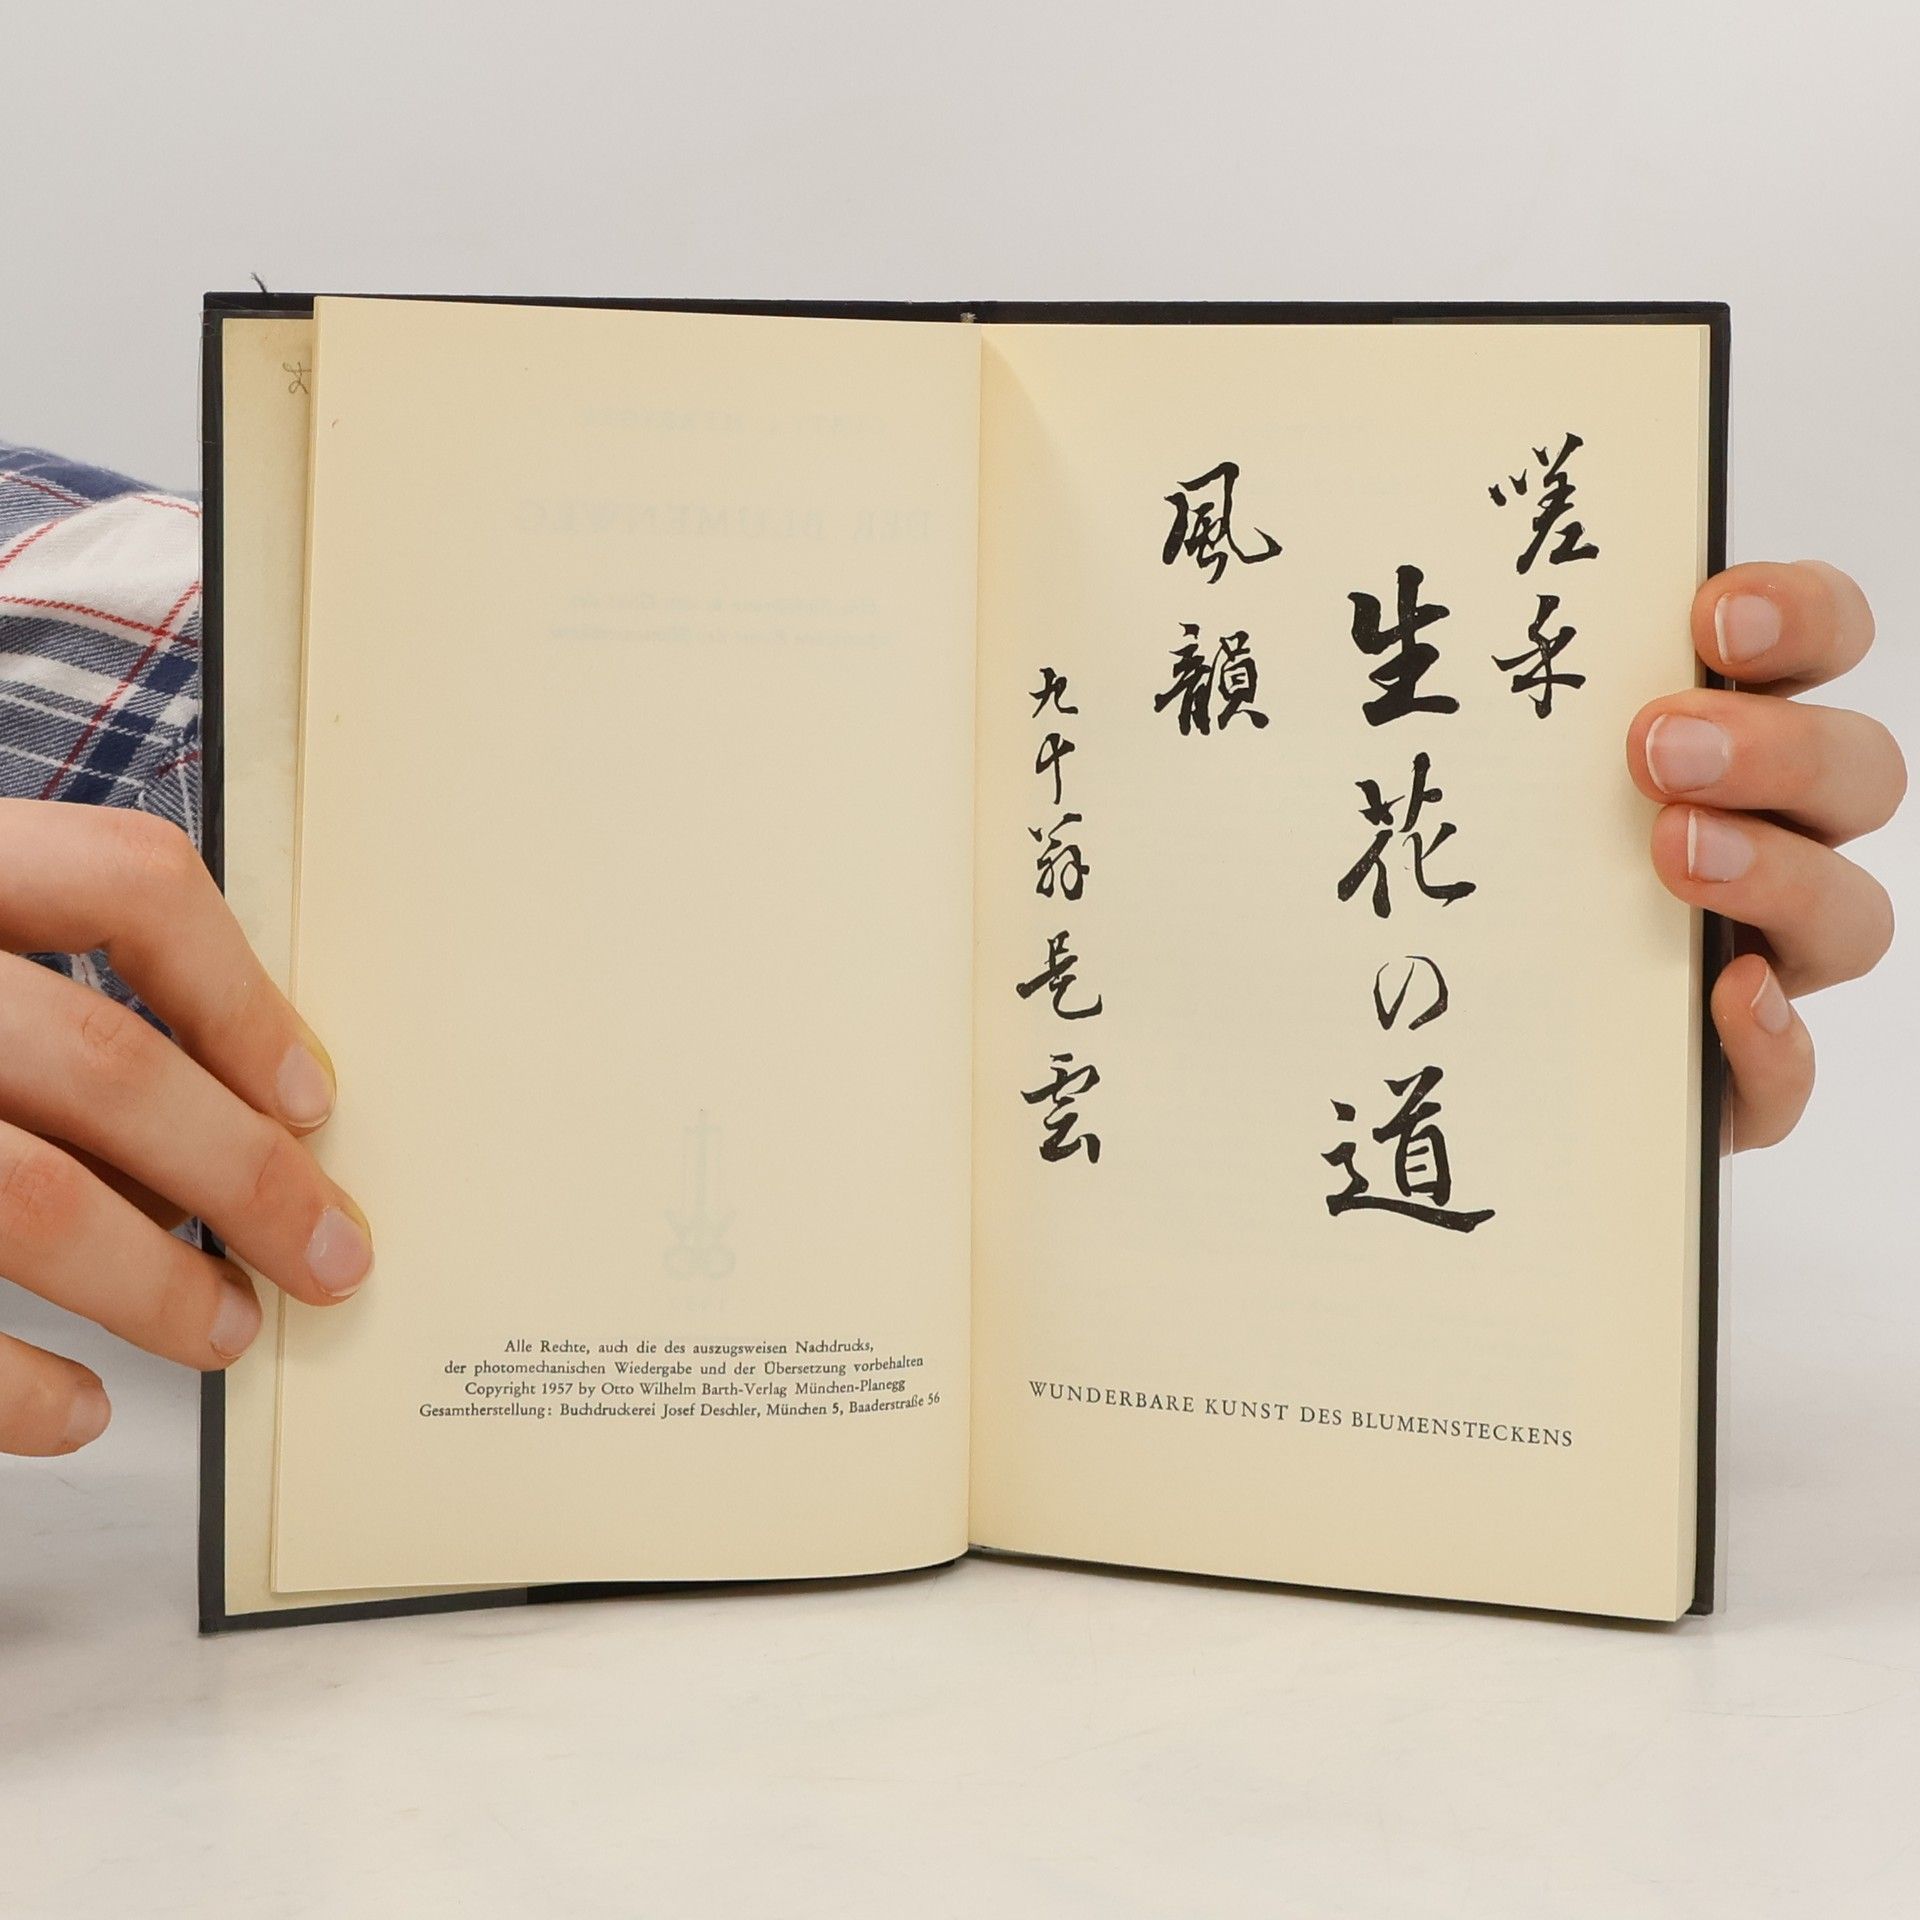 Alle Rechte, auch die des auszugsweisen Nachdrucks,
der photomechanischen Wiedergabe und der Übersetzung vorbehalten
Copyright 1957 by Otto Wilhelm Barth-Verlag München-Planegg
Gesamtherstellung: Buchdruckerei Josef Deschler, München 5, Baaderstraße 56
嗟乎
生花の道
風韻
九十翁是雲
WUNDERBARE KUNST DES BLUMENSTECKENS